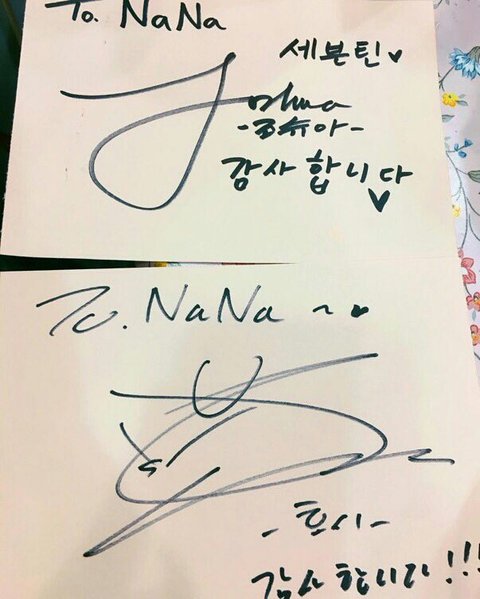 To. NaNa
세븐틴♥
Joshua
-죠슈아-
감사합니다
♥
To. NaNa ~♥
-호시-
감사합니다!!!